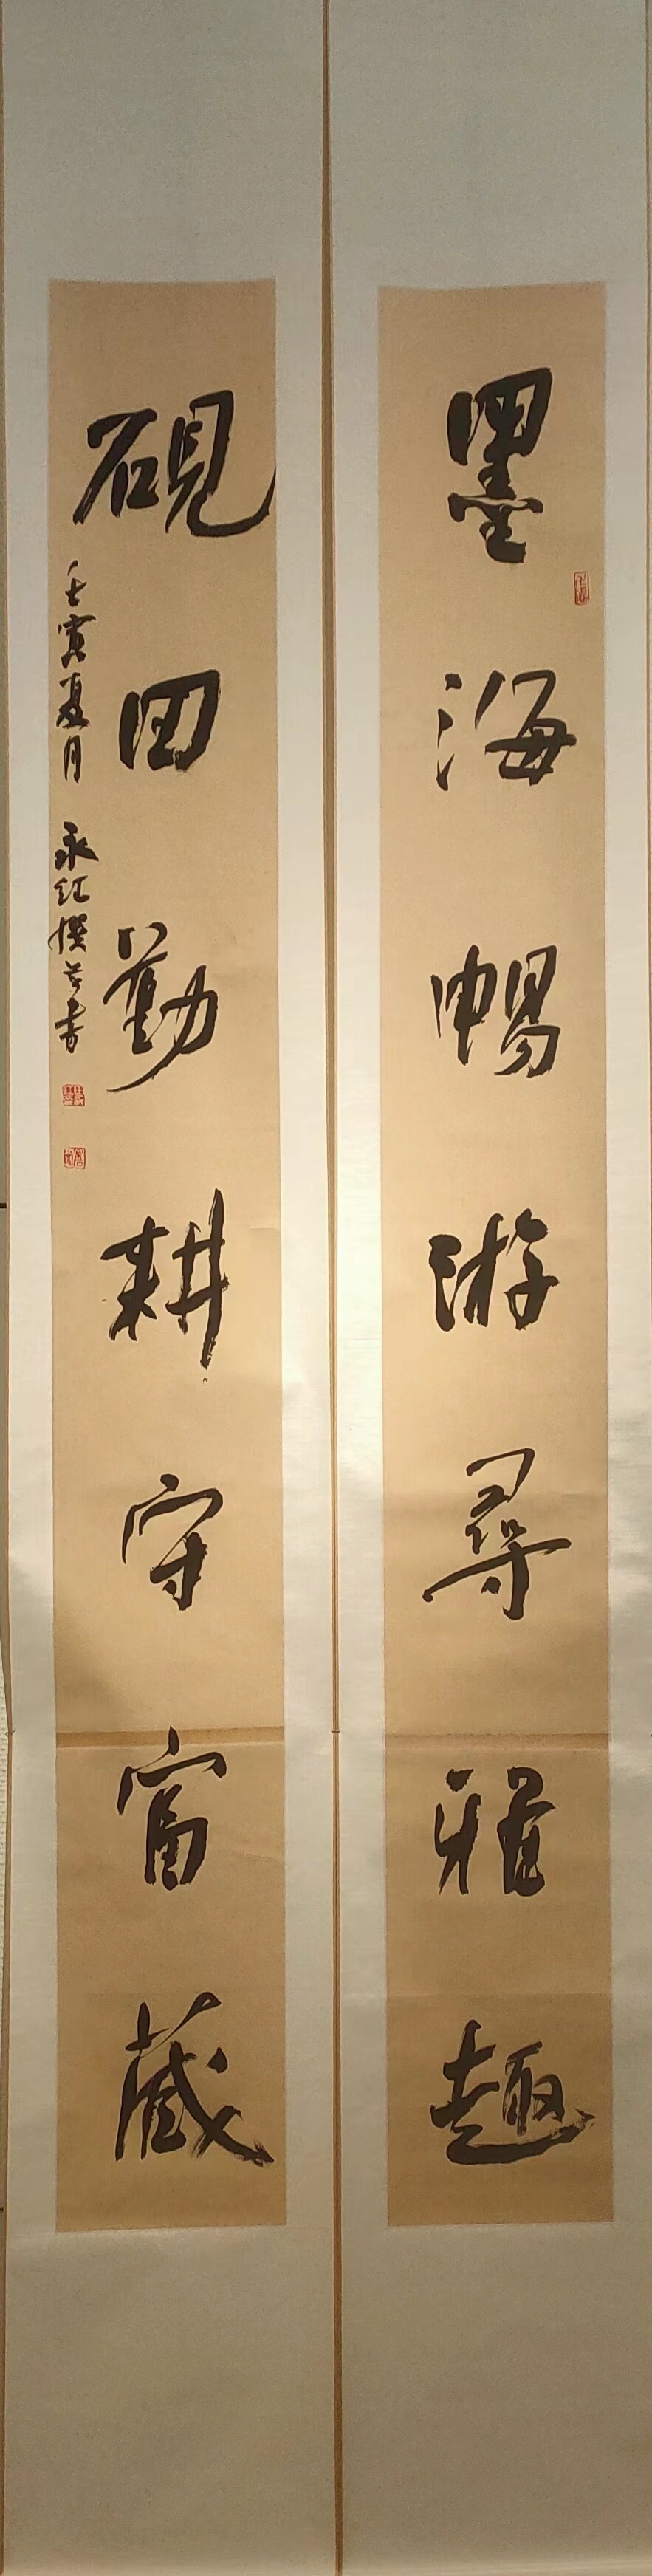 墨海暢游尋雅趣
硯田勤耕守富藏
壬寅夏月 永红撰并书